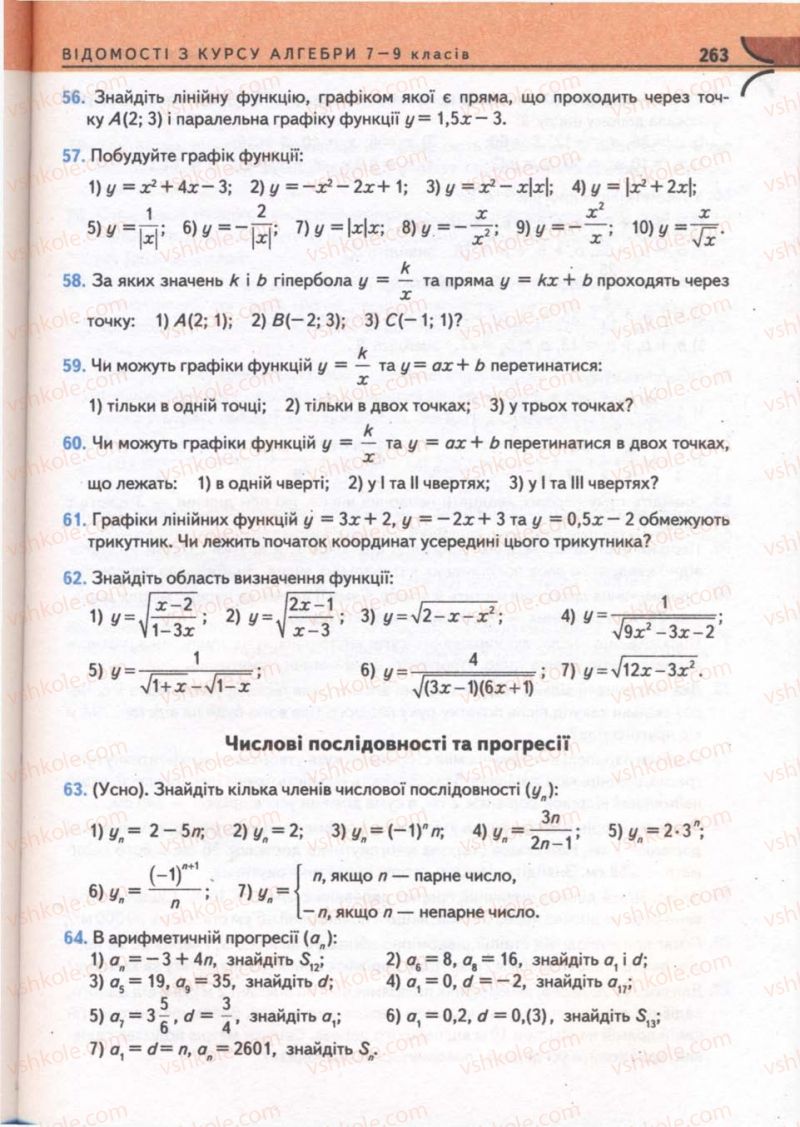 ВІДОМОСТІ З КУРСУ АЛГЕБРИ 7–9 класів 263
56. Знайдіть лінійну функцію, графіком якої є пряма, що проходить через точ-
ку A(2; 3) і паралельна графіку функції y = 1,5x – 3.
57. Побудуйте графік функції:
1) y = x² + 4x – 3; 2) y = –x² – 2x + 1; 3) y = x² – x|x|; 4) y = |x² + 2x|;
5) y = 1/|x|; 6) y = –2/|x|; 7) y = |x|x; 8) y = – x/x²; 9) y = – x²/x; 10) y = x/√x.
58. За яких значень k і b гіпербола y = k/x та пряма y = kx + b проходять через
точку: 1) A(2; 1); 2) B(–2; 3); 3) C(–1; 1)?
59. Чи можуть графіки функцій y = k/x та y = ax + b перетинатися:
1) тільки в одній точці; 2) тільки в двох точках; 3) у трьох точках?
60. Чи можуть графіки функцій y = k/x та y = ax + b перетинатися в двох точках,
що лежать: 1) в одній чверті; 2) у I та II чвертях; 3) у I та III чвертях?
61. Графіки лінійних функцій y = 3x + 2, y = –2x + 3 та y = 0,5x – 2 обмежують
трикутник. Чи лежить початок координат усередині цього трикутника?
62. Знайдіть область визначення функції:
1) y = √((x–2)/(1–3x)); 2) y = √((2x–1)/(x–3)); 3) y = √(2–x–x²); 4) y = 1/√(9x²–3x–2);
5) y = 1/(√(1+x) – √(1–x)); 6) y = 4/√((3x–1)(6x+1)); 7) y = √(12x–3x²).
Числові послідовності та прогресії
63. (Усно). Знайдіть кілька членів числової послідовності (yₙ):
1) yₙ = 2 – 5n; 2) yₙ = 2; 3) yₙ = (–1)ⁿ n; 4) yₙ = 3n/(2n–1); 5) yₙ = 2·3ⁿ;
6) yₙ = (–1)ⁿ⁺¹/n; 7) yₙ = { n, якщо n — парне число,
–n, якщо n — непарне число.
64. В арифметичній прогресії (aₙ):
1) aₙ = –3 + 4n, знайдіть S₁₂; 2) a₆ = 8, a₈ = 16, знайдіть a₁ і d;
3) a₅ = 19, a₉ = 35, знайдіть d; 4) a₁ = 0, d = –2, знайдіть a₁₇;
5) a₇ = 3 5/6, d = 3/4, знайдіть a₁; 6) a₁ = 0,2, d = 0,(3), знайдіть S₁₃;
7) a₁ = d = n, aₙ = 2601, знайдіть Sₙ.